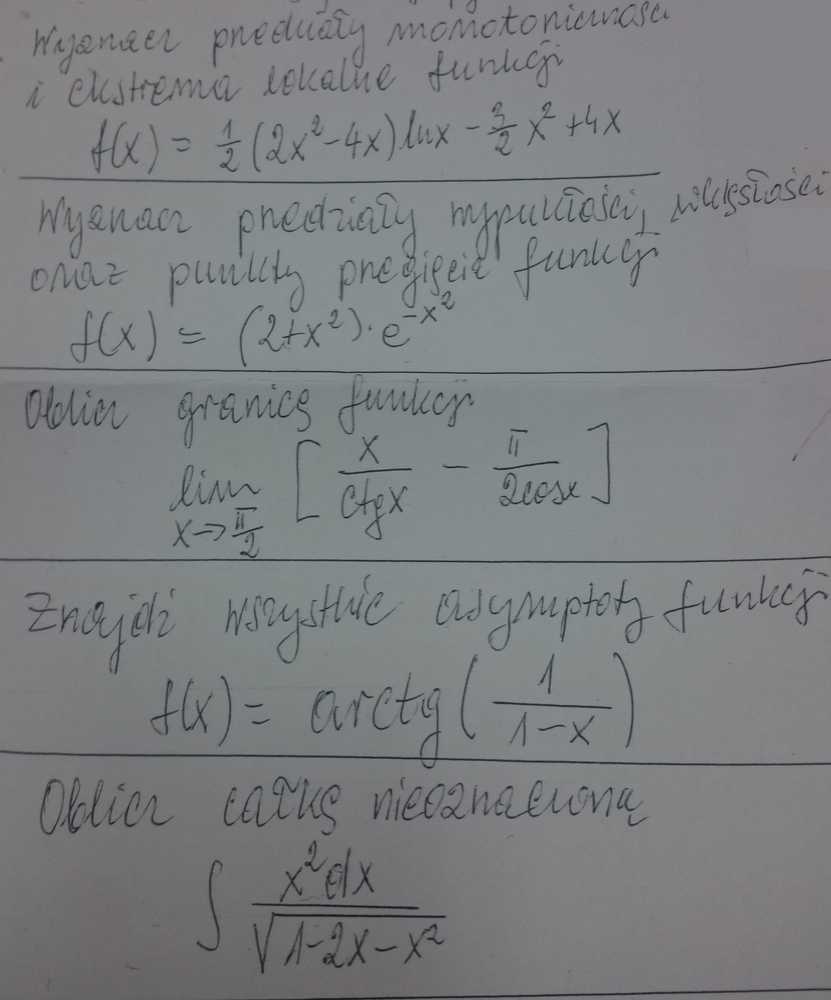 Wyznacz przedziały monotoniczności
i ekstrema lokalne funkcji
f(x) = 1/2 (2x² - 4x) lnx - 3/2 x² + 4x
Wyznacz przedziały wypukłości, wklęsłości
oraz punkty przegięcia funkcji
f(x) = (2+x²)·e^(-x²)
Oblicz granicę funkcji
lim x→π/2 [ x/ctgx - π/2cosx ]
Znajdź wszystkie asymptoty funkcji
f(x) = arctg( 1/(1-x) )
Oblicz całkę nieoznaczoną
∫ x²dx / √(1-2x-x²)